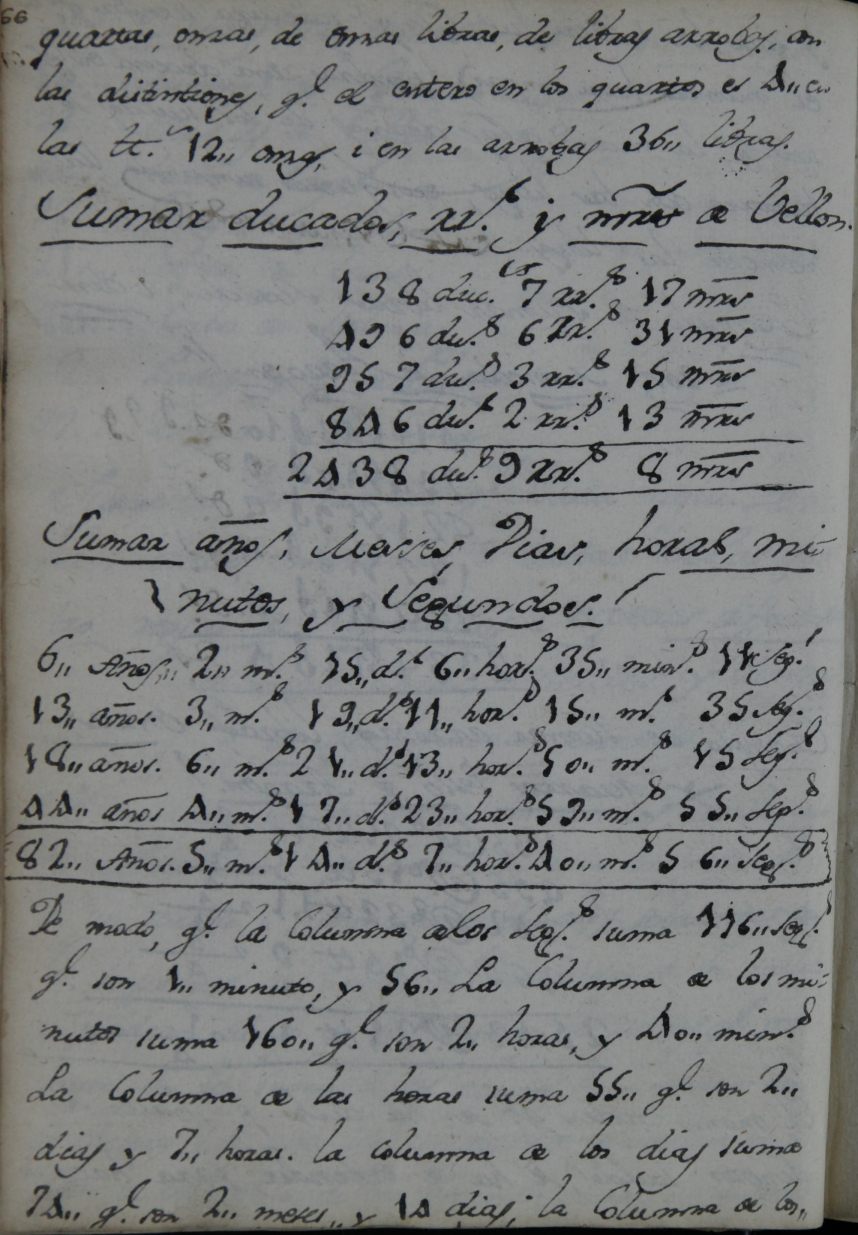 66
quartas, onzas, de onzas libras, de libras arrobas, con
las distintiones, q.e el entero en los quartos es 4,, en
las lt.s 12,, onzs, i en las arrobas 36,, libras.
Sumar ducados, rr.s y mrs de Vellon.
138 duc.os 7 rr.s 17 mrs
496 du.s 6 rr.s 31 mrs
957 du.s 3 rr.s 15 mrs
846 du.s 2 rr.s 13 mrs
2438 du.s 9 rr.s 8 mrs
Sumar años, Meses, Dias, horas, mi-
nutos, y Segundos.
6,, Años,, 2,, m.s 15,, d.s 6,, hor.s 35,, min.s 11 seg.s
13,, años. 3,, m.s 19,, d.s 11,, hor.s 15,, m.s 35 seg.s
18,, años. 6,, m.s 21,, d.s 13,, hor.s 50,, m.s 15 seg.s
44,, años 4,, m.s 17,, d.s 23,, hor.s 59,, m.s 55,, seg.s
82,, Años. 5,, m.s 14,, d.s 7,, hor.s 40,, m.s 56,, seg.s
De modo, q.e la Columna de los seg.s suma 116,, seg.s
q.e son 1,, minuto, y 56,, La Columna de los mi-
nutos suma 160,, q.e son 2,, horas, y 40,, min.s
La Columna de las horas suma 55,, q.e son 2,,
dias y 7,, horas. la columna de los dias suma
74,, q.e son 2,, meses,, y 14 dias; la Columna de los,,